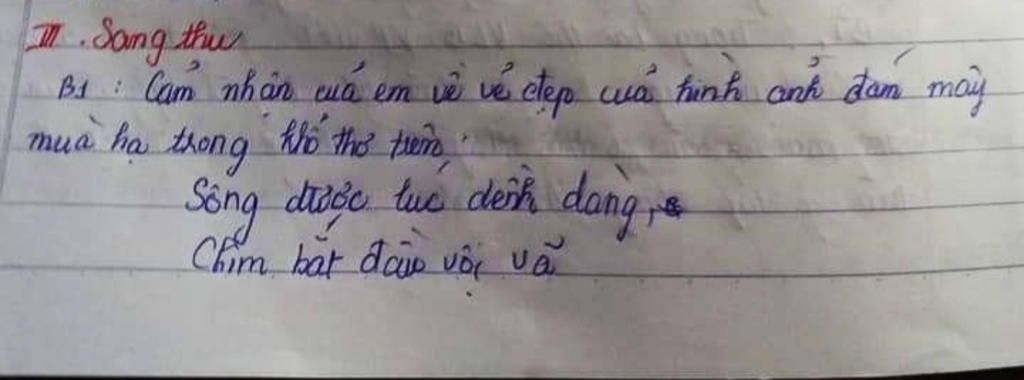 III. Sang thu
B1 : Cảm nhận của em về vẻ đẹp của hình ảnh đám mây
mùa hạ trong khổ thơ trên:
Sông được lúc dềnh dàng,
Chim bắt đầu vội vã